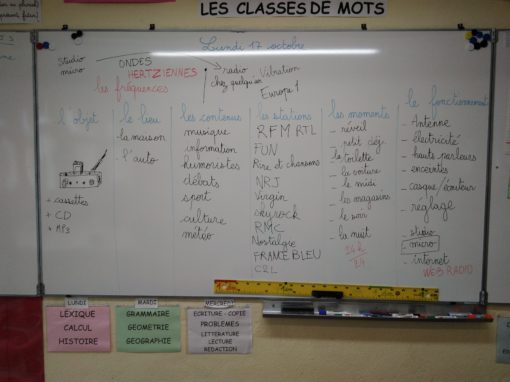 LES CLASSES DE MOTS
Lundi 17 octobre
Studio
micro
ONDES
HERTZIENNES
les fréquences
radio
chez quelqu'un
Vibration
Europe 1
l'objet
+ cassettes
+ CD
+ MP3
le lieu
la maison
l'auto
les contenus
musique
information
humoristes
débats
sport
culture
météo
les stations
RFM RTL
FUN
Rire et chansons
NRJ
Virgin
skyrock
RMC
Nostalgie
FRANCE BLEU
C2L
les moments
- réveil
- petit déj.
- la toilette
- la voiture
- le midi
- les magasins
- le soir
- la nuit
24h
/24
le fonctionnement
- Antenne
- électricité
- hauts parleurs
- enceintes
- casque/écouteur
- réglage
- studio
- micro
- internet
WEB RADIO
LUNDI
LEXIQUE
CALCUL
HISTOIRE
MARDI
GRAMMAIRE
GEOMETRIE
GEOGRAPHIE
MERCREDI
ECRITURE - COPIE
PROBLEMES
LITTERATURE
LECTURE
REDACTION